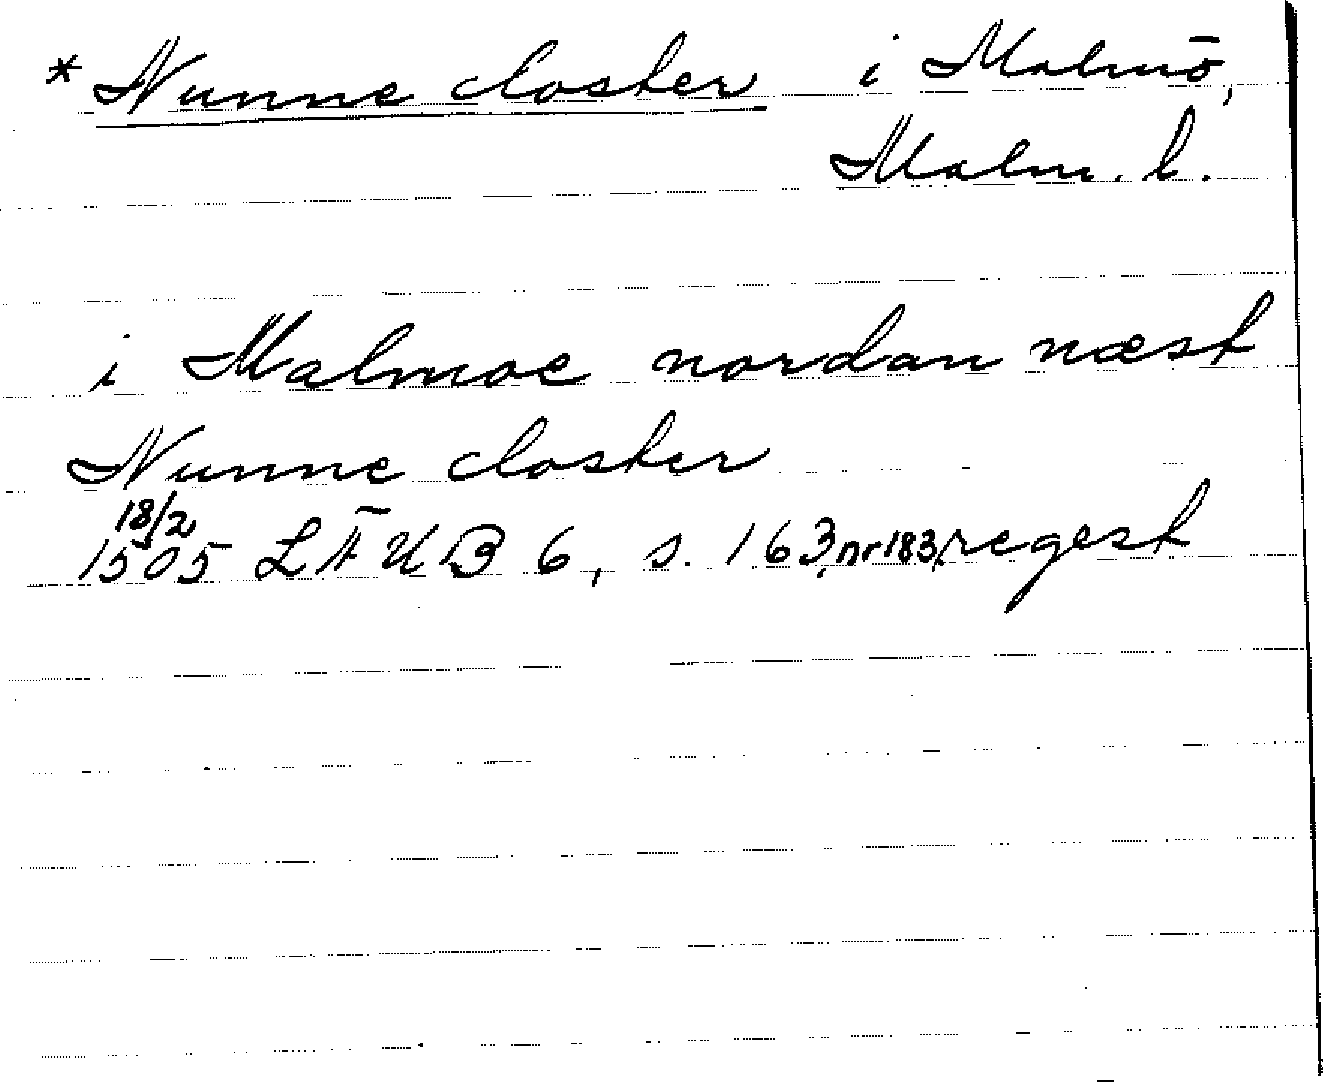 * Nunne closter i Malmö,
Malm. l.
i Malmoe nordan næst
Nunne closter
18/2
1505 LÄUB 6, s. 163, nr 183, regest